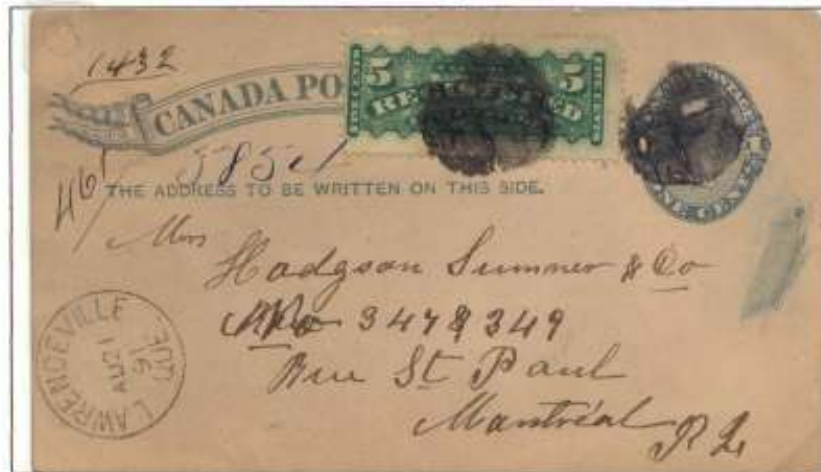 1432
CANADA PO
5 REGISTERED 5
5851
461
THE ADDRESS TO BE WRITTEN ON THIS SIDE.
Mrs
Hodgson Sumner & Co
347 & 349
Rue St Paul
Montréal P Q
LAWRENCEVILLE QUE
AU 21
91